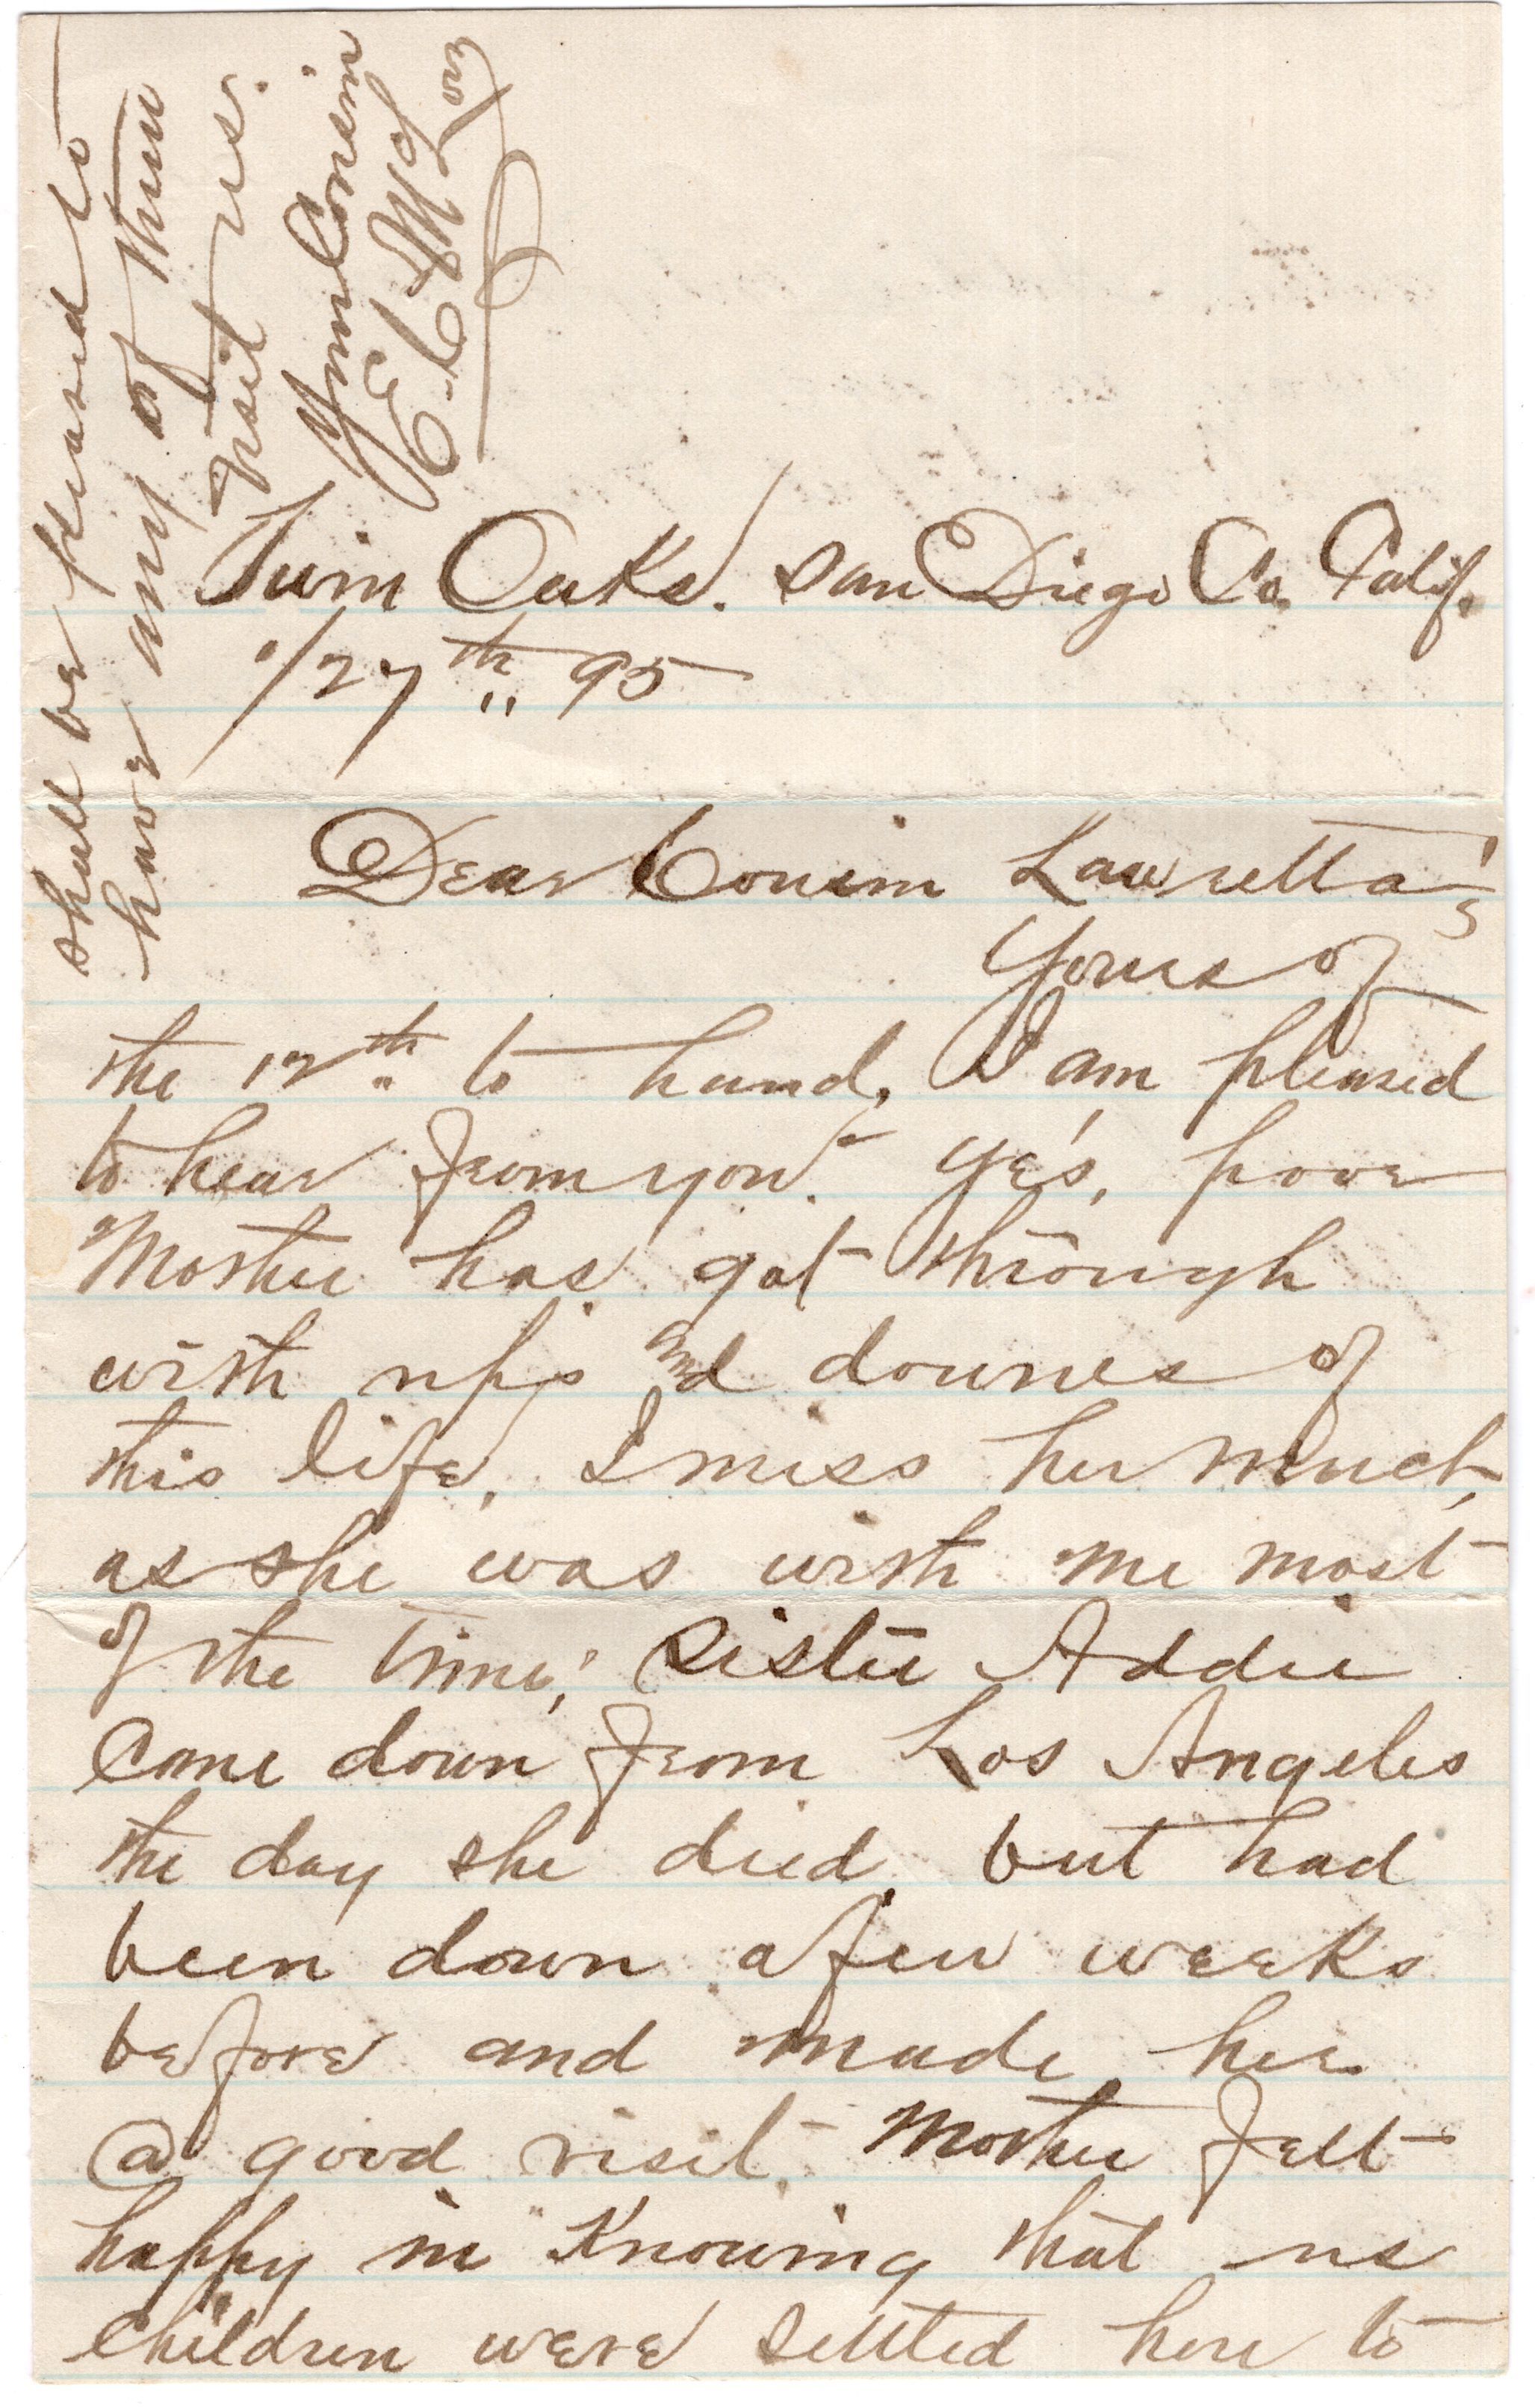 Twin Oaks. San Diego Co. Calif.
1/27th 95
Dear Cousin Lauretta;
Yours of
the 12th to hand, I am pleased
to hear from you. Yes, poor
Mother has got through
with ups and downes of
this life, I miss her much,
as she was with me most
of the time; Sister Addie
Came down from Los Angeles
the day she died, but had
been down a few weeks
before and made her
a good visit. Mother felt
happy in Knowing that us
Children were settled here to
shall be pleased to
have any of them
visit us.
Your Cousin